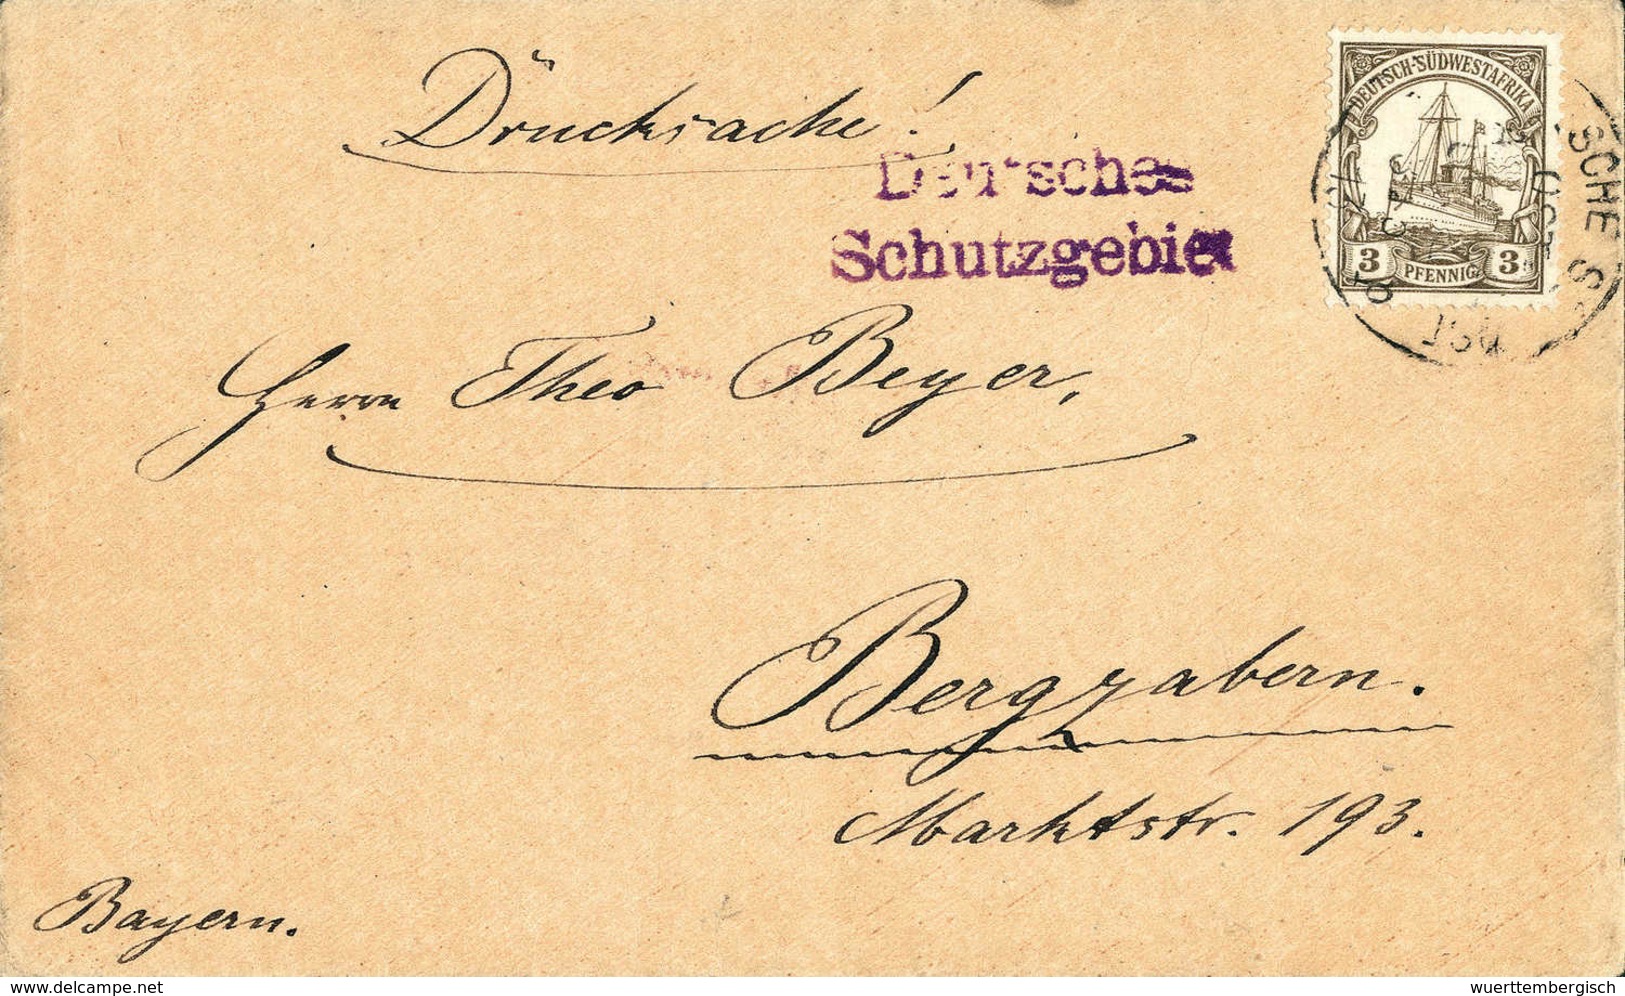 Drucksache!
Deutsches
Schutzgebiet
DEUTSCH-SÜDWESTAFRIKA
3 PFENNIG 3
SCHE S
OST
Herrn Theo Beyer,
Bergzabern.
Marktstr. 193.
Bayern.
delcampe.net
wuerttembergisch